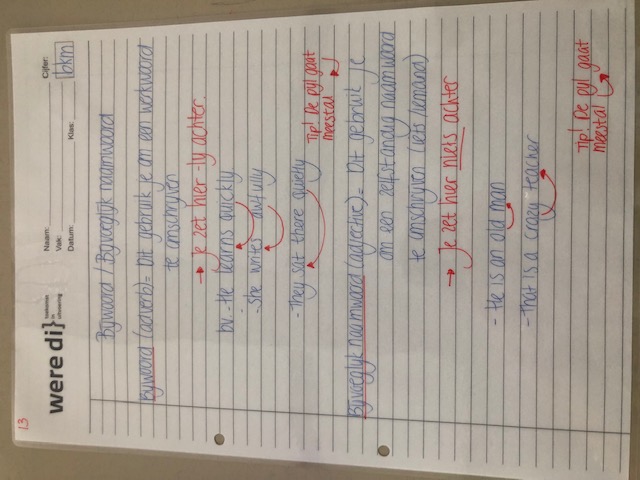 1.3
were di}
toekomst in uitvoering
Naam:
Vak:
Datum:
Klas:
Cijfer:
bkm
Bijwoord / Bijvoeglijk naamwoord
Bijwoord (adverb) = Dit gebruik je om een werkwoord
te omschrijven
→ Je zet hier -ly achter.
bv. - He learns quickly
- She writes awfully
- They sat there quietly
Tip! De pijl gaat
meestal
Bijvoeglijk naamwoord (adjective) = Dit gebruik je
om een zelfstandig naamwoord
te omschrijven (iets/iemand)
→ Je zet hier niets achter
- He is an old man
- That is a crazy teacher
Tip! De pijl gaat
meestal